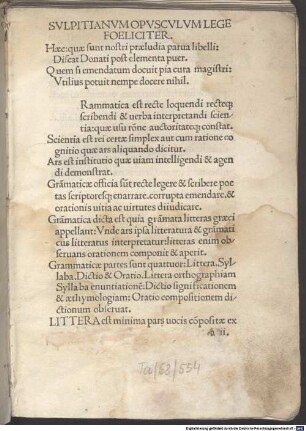 SVLPITIANVM OPVSCVLVM LEGE
FOELICITER.
Hæc: quæ sunt nostri præludia parua libelli:
Discat Donati post elementa puer.
Quem si emendatum docuit pia cura magistri:
Vtilius potuit nempe docere nihil.
Rammatica est recte loquendi recteq;
scribendi & uerba interpretandi scien
tia: quæ usu rōne auctoritateq; constat.
Scientia est rei certæ simplex aut cum ratione co
gnitio quæ ars aliquando dicitur.
Ars est institutio quæ uiam intelligendi & agen
di demonstrat.
Grāmaticæ officia sūt recte legere & scribere poe
tas scriptoresq; enatrare. corrupta emendare. &
orationis uitia ac uirtutes diiudicare.
Grāmatica dicta est quia grāmata litteras græci
appellant: Vnde ars ipsa litteratura & grāmati
cus litteratus interpretatur: litteras enim ob
seruans orationem componit & aperit.
Grammaticæ partes sunt quattuor: Littera. Syl
laba. Dictio & Oratio. Littera orthographiam
Syllaba enuntiationē: Dictio significationem
& æthymologiam: Oratio compositionem di
ctionum obseruat.
LITTERA est minima pars uocis cōpositæ ex
a ii.